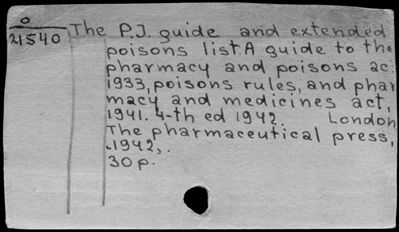 0
21540
The P.J. guide and extended
poisons list. A guide to the
pharmacy and poisons ac
1933, poisons rules, and phar
macy and medicines act,
1941. 4-th ed 1942. London
The pharmaceutical press,
1942,.
30 p.